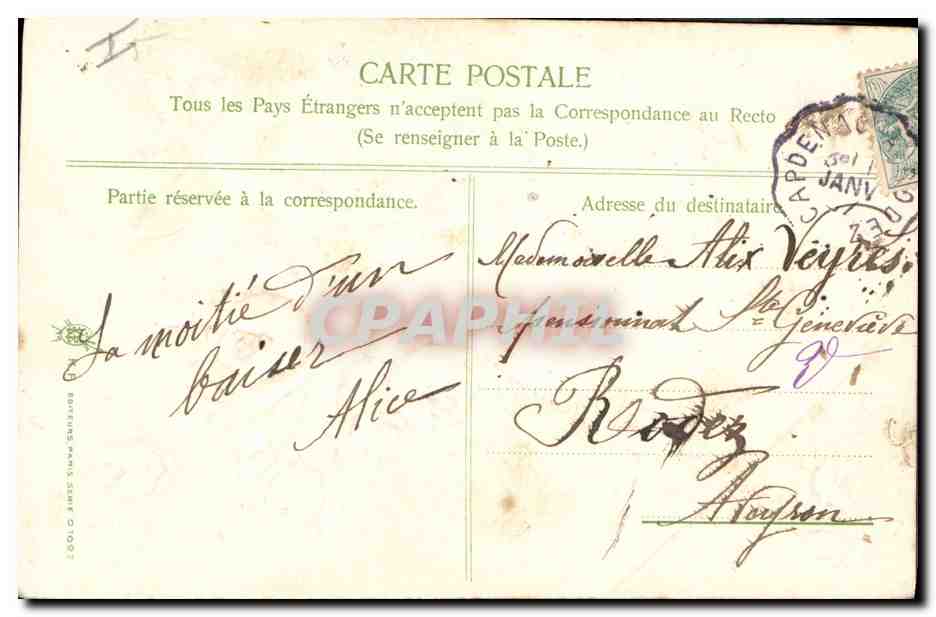 CARTE POSTALE
Tous les Pays Étrangers n'acceptent pas la Correspondance au Recto
(Se renseigner à la Poste.)
Partie réservée à la correspondance.
Adresse du destinataire
La moitié d'un
baiser
Alice
Mademoiselle Alix Veyres.
Pensionnat Ste Geneviève
Rodez
Aveyron
CAPDENAC
RODEZ
JANV
EDITEURS, PARIS, SERIE
CPAPHIL